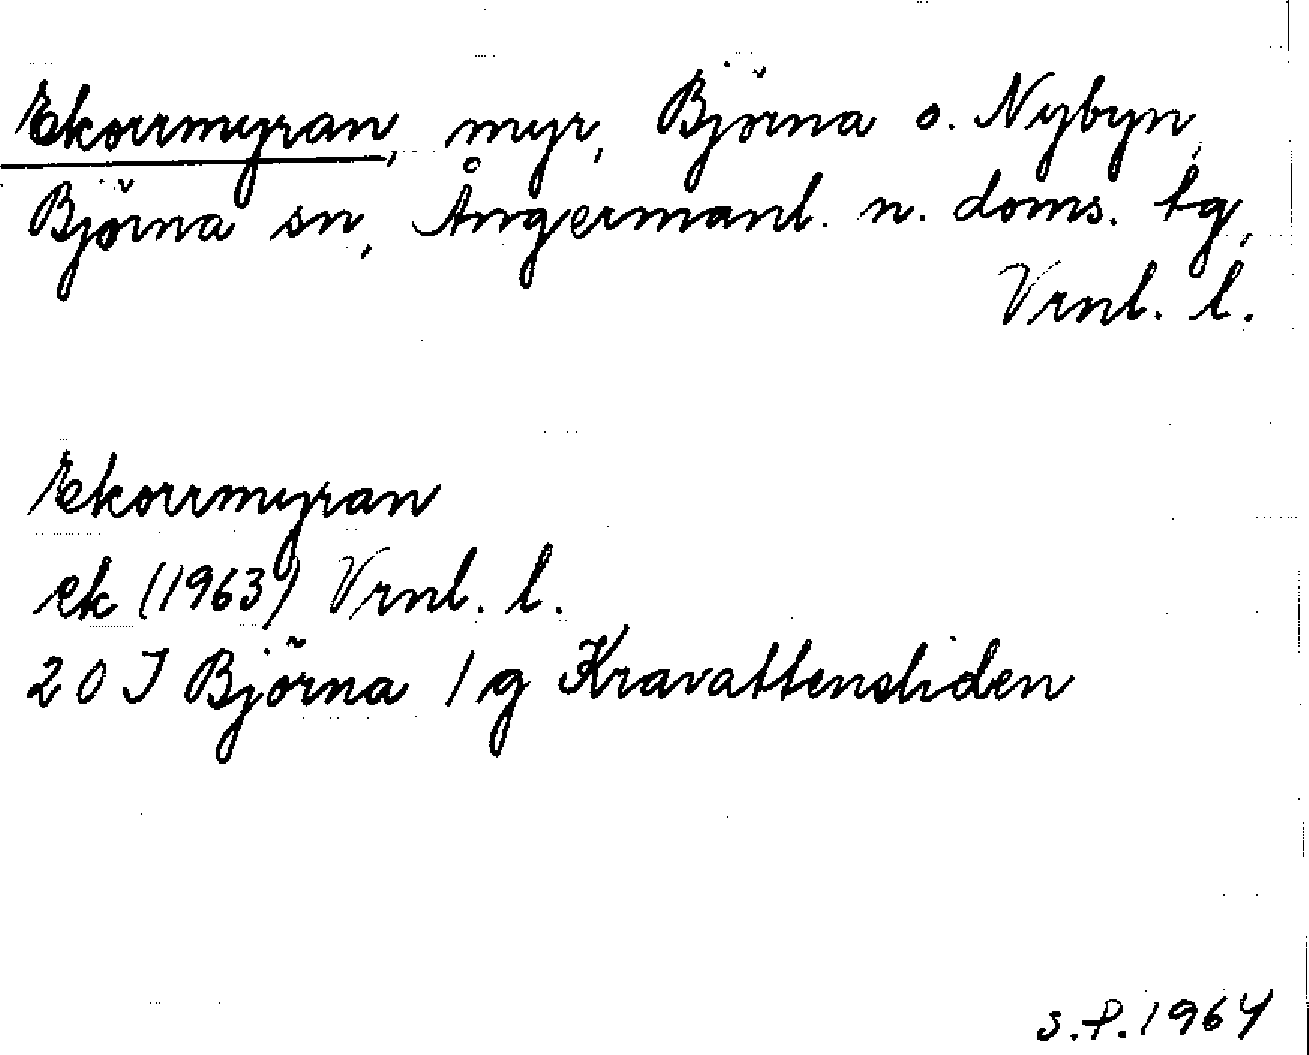 Ekorrmyran, myr, Björna o. Nybyn,
Björna sn, Ångermanl. n. doms. tg,
Vrnl. l.
Ekorrmyran
ek (1963) Vrnl. l.
20 I Björna 1 g Kravattensliden
S.P. 1964